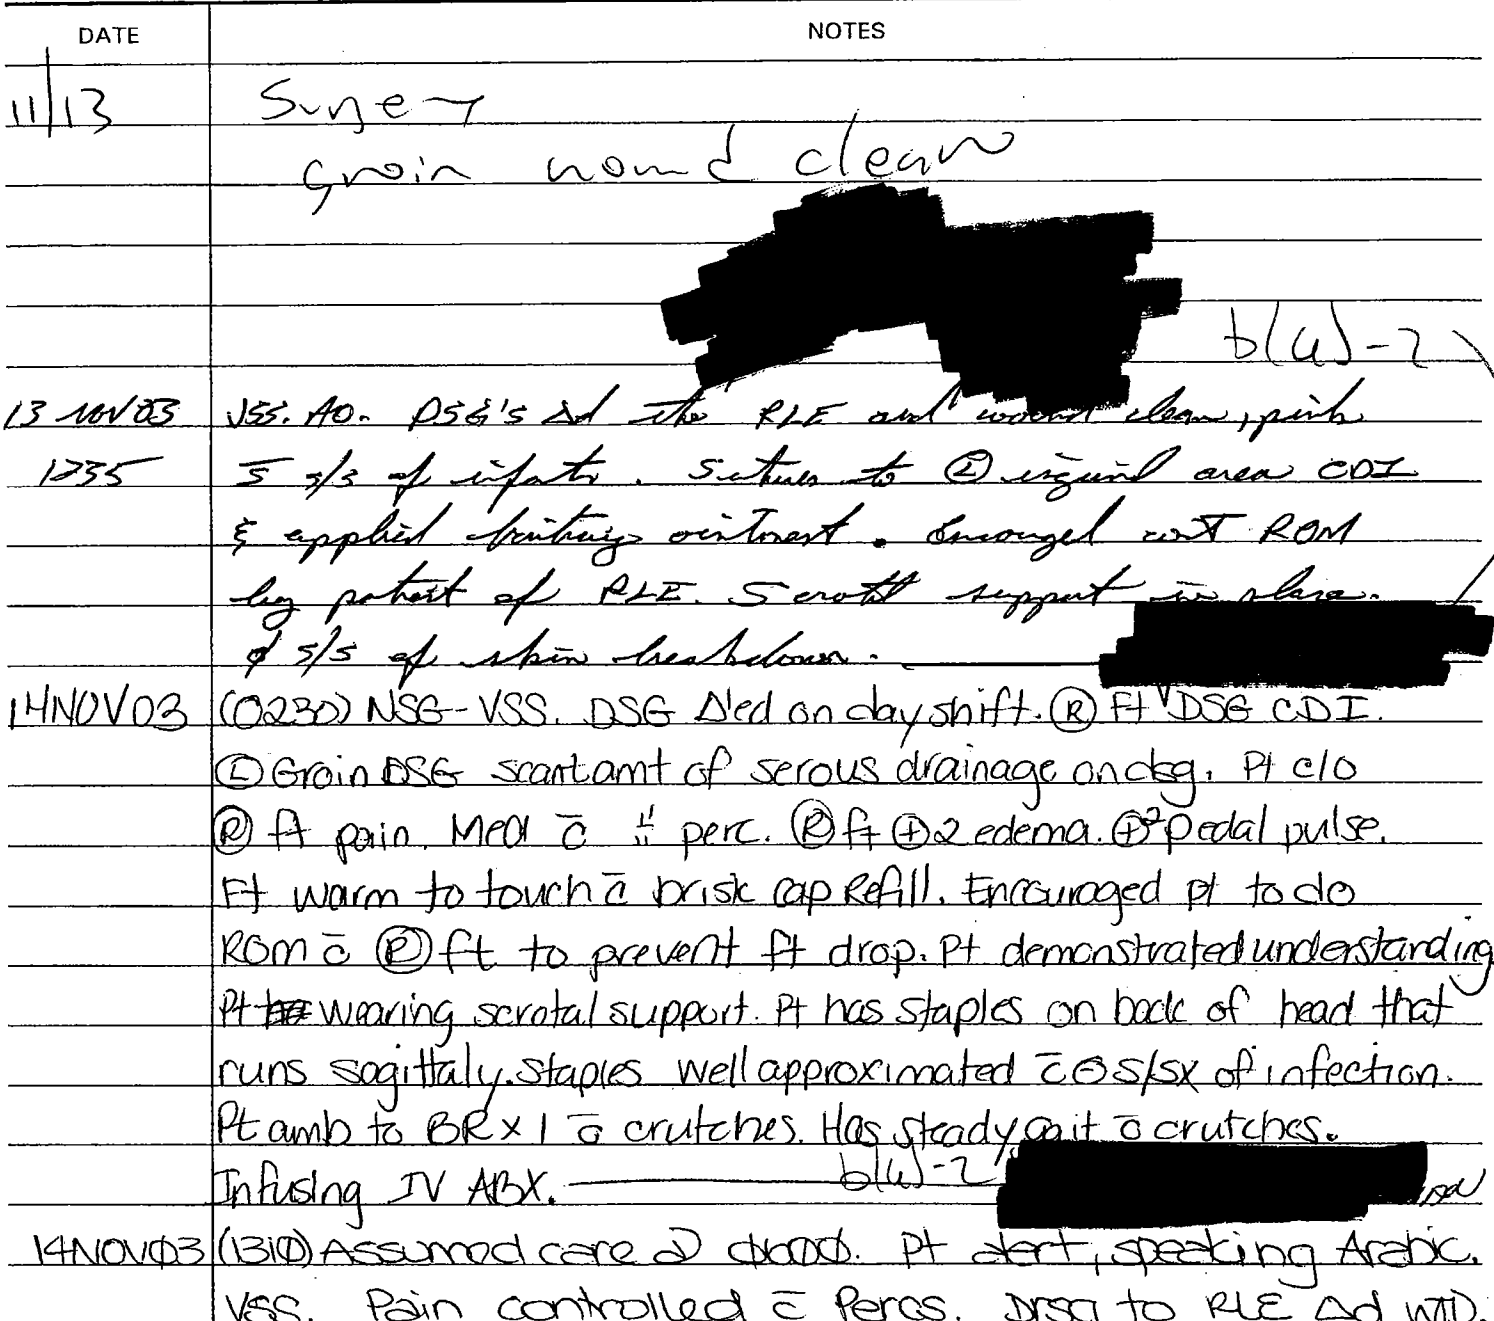 DATE NOTES
11/13 Surgery
groin wound clean
b(6)-2
13 NOV 03 VSS. AO. DSG's Δd to the RLE and wound clean, pink
1235 s̄ s/s of infectn. Sutures to Ⓛ inguinal area CDI
& applied ointment. Encouraged cont ROM
by patient of RLE. Scrotal support in place.
ø s/s of skin breakdown.
14NOV03 (0230) NSG-VSS. DSG Δ'ed on day shift. Ⓡ Ft DSG CDI.
Ⓛ Groin DSG scant amt of serous drainage on dsg. Pt c/o
Ⓡ ft pain. Med c̄ ii perc. Ⓡ ft ⊕2 edema. ⊕2 pedal pulse.
Ft warm to touch c̄ brisk cap refill. Encouraged pt to do
ROM c̄ Ⓡ ft to prevent ft drop. Pt demonstrated understanding
Pt wearing scrotal support. Pt has staples on back of head that
runs sagittaly. Staples well approximated c̄ ⊖ s/sx of infection.
Pt amb to BR x 1 c̄ crutches. Has steady gait c̄ crutches.
Infusing IV ABX. b(6)-2
14NOVØ3 (131Ø) Assumed care @ Pt alert, speaking Arabic.
VSS. Pain controlled c̄ Percs. Drsg to RLE Δd WTD.